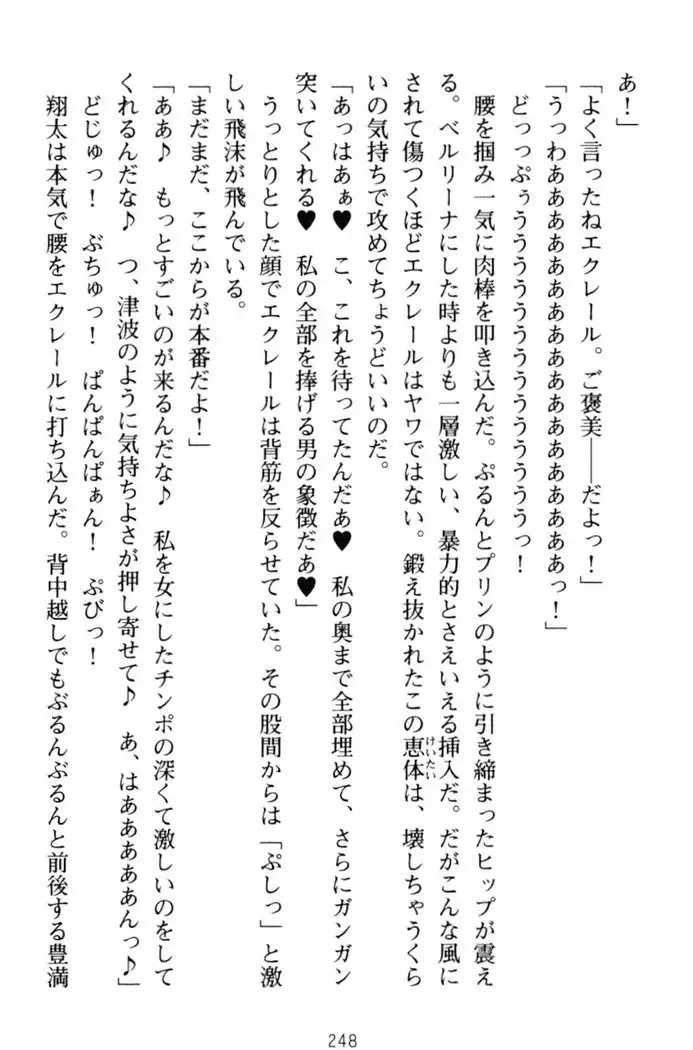 あ！」
「よく言ったねエクレール。ご褒美――だよっ！」
「うっわああああああああああああああああああっ！」
どっっぷぅぅぅぅぅぅぅぅぅぅぅぅぅっ！
腰を掴み一気に肉棒を叩き込んだ。ぷるんとプリンのように引き締まったヒップが震え
る。ベルリーナにした時よりも一層激しい、暴力的とさえいえる挿入だ。だがこんな風に
されて傷つくほどエクレールはヤワではない。鍛え抜かれたこの恵体（けいたい）は、壊しちゃうくら
いの気持ちで攻めてちょうどいいのだ。
「あっはあぁ♥　こ、これを待ってたんだぁ♥　私の奥まで全部埋めて、さらにガンガン
突いてくれる♥　私の全部を捧げる男の象徴だぁ♥」
うっとりとした顔でエクレールは背筋を反らせていた。その股間からは「ぷしっ」と激
しい飛沫が飛んでいる。
「まだまだ、ここからが本番だよ！」
「ああ♪　もっとすごいのが来るんだな♪　私を女にしたチンポの深くて激しいのをして
くれるんだな♪　つ、津波のように気持ちよさが押し寄せて♪　あ、はああああぁんっ♪」
どじゅっ！　ぶちゅっ！　ぱんぱんぱぁん！　ぷびっ！
翔太は本気で腰をエクレールに打ち込んだ。背中越しでもぶるんぶるんと前後する豊満
248